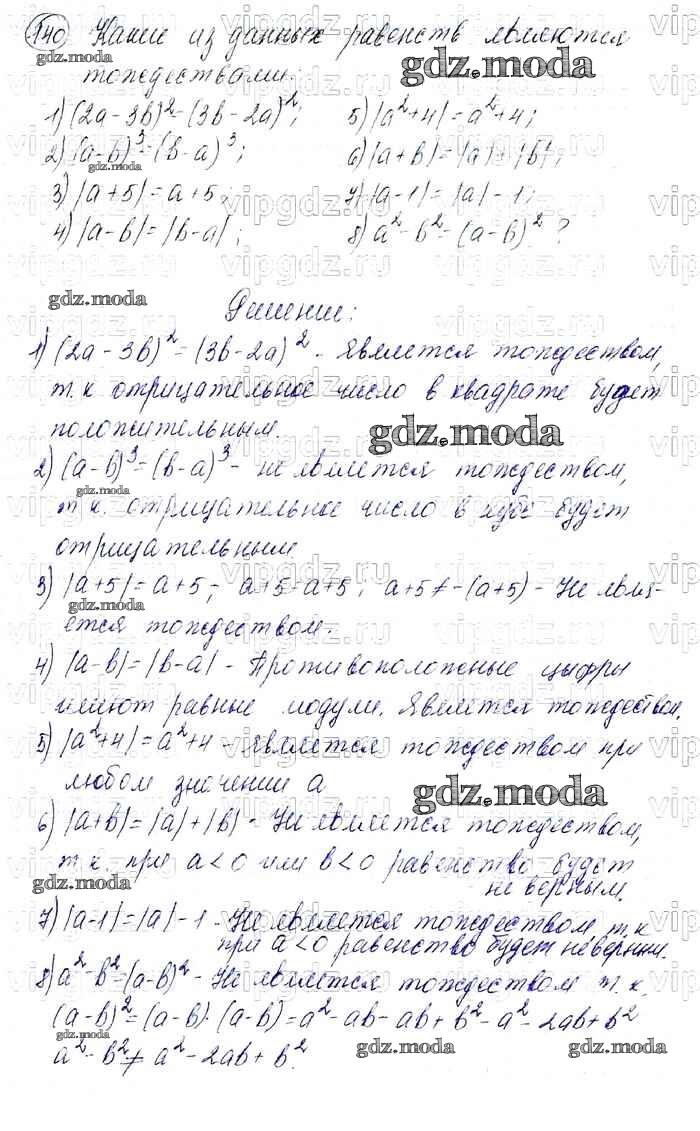 140 Какие из данных равенств являются
тождествами:
1) (2a-3b)²=(3b-2a)²; 5) |a²+4|=a²+4;
2) (a-b)³=(b-a)³; 6) |a+b|=|a|+|b|;
3) |a+5|=a+5; 7) |a-1|=|a|-1;
4) |a-b|=|b-a|; 8) a²-b²=(a-b)²?
Решение:
1) (2a-3b)²=(3b-2a)² - является тождеством,
т.к отрицательное число в квадрате будет
положительным.
2) (a-b)³=(b-a)³ - не является тождеством,
т.к. отрицательное число в кубе будет
отрицательным
3) |a+5|=a+5 -; a+5=a+5; a+5≠-(a+5) - Не явля-
ется тождеством.
4) |a-b|=|b-a| - Противоположные цифры
имеют равные модули. Является тождеством.
5) |a²+4|=a²+4 - является тождеством при
любом значении a
6) |a+b|=|a|+|b| - Не является тождеством,
т.к. при a<0 или b<0 равенство будет
не верным.
7) |a-1|=|a|-1 - Не является тождеством, т.к
при a<0 равенство будет неверным.
8) a²-b²=(a-b)² - Не является тождеством т.к.
(a-b)²=(a-b)·(a-b)=a²-ab-ab+b²=a²-2ab+b²
a²-b²≠a²-2ab+b².
gdz.moda
vipgdz.ru